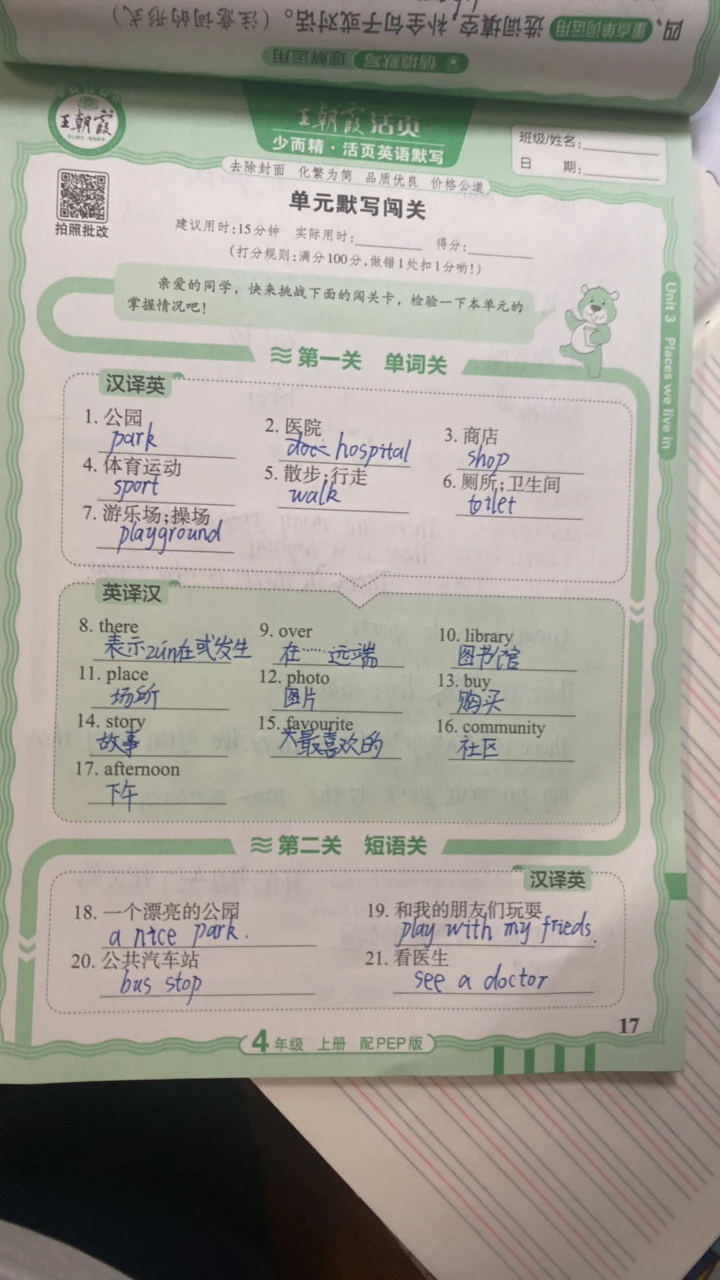 四、重点单词运用 选词填空,补全句子或对话。(注意词的形式)
情境默写 理解运用
王朝霞
王朝霞活页
少而精·活页英语默写
班级/姓名:
日 期:
去除封面 化繁为简 品质优良 价格公道
拍照批改
单元默写闯关
建议用时:15分钟 实际用时: 得分:
(打分规则:满分100分,做错1处扣1分哟!)
亲爱的同学,快来挑战下面的闯关卡,检验一下本单元的
掌握情况吧!
Unit 3 Places we live in
第一关 单词关
汉译英
1. 公园 2. 医院 3. 商店
park hospital shop
4. 体育运动 5. 散步;行走 6. 厕所;卫生间
sport walk toilet
7. 游乐场;操场
playground
英译汉
8. there 9. over 10. library
表示zún在或发生 在……远端 图书馆
11. place 12. photo 13. buy
场所 图片 购买
14. story 15. favourite 16. community
故事 最喜欢的 社区
17. afternoon
下午
第二关 短语关
汉译英
18. 一个漂亮的公园 19. 和我的朋友们玩耍
a nice park. play with my frieds.
20. 公共汽车站 21. 看医生
bus stop see a doctor
17
4年级 上册 配PEP版